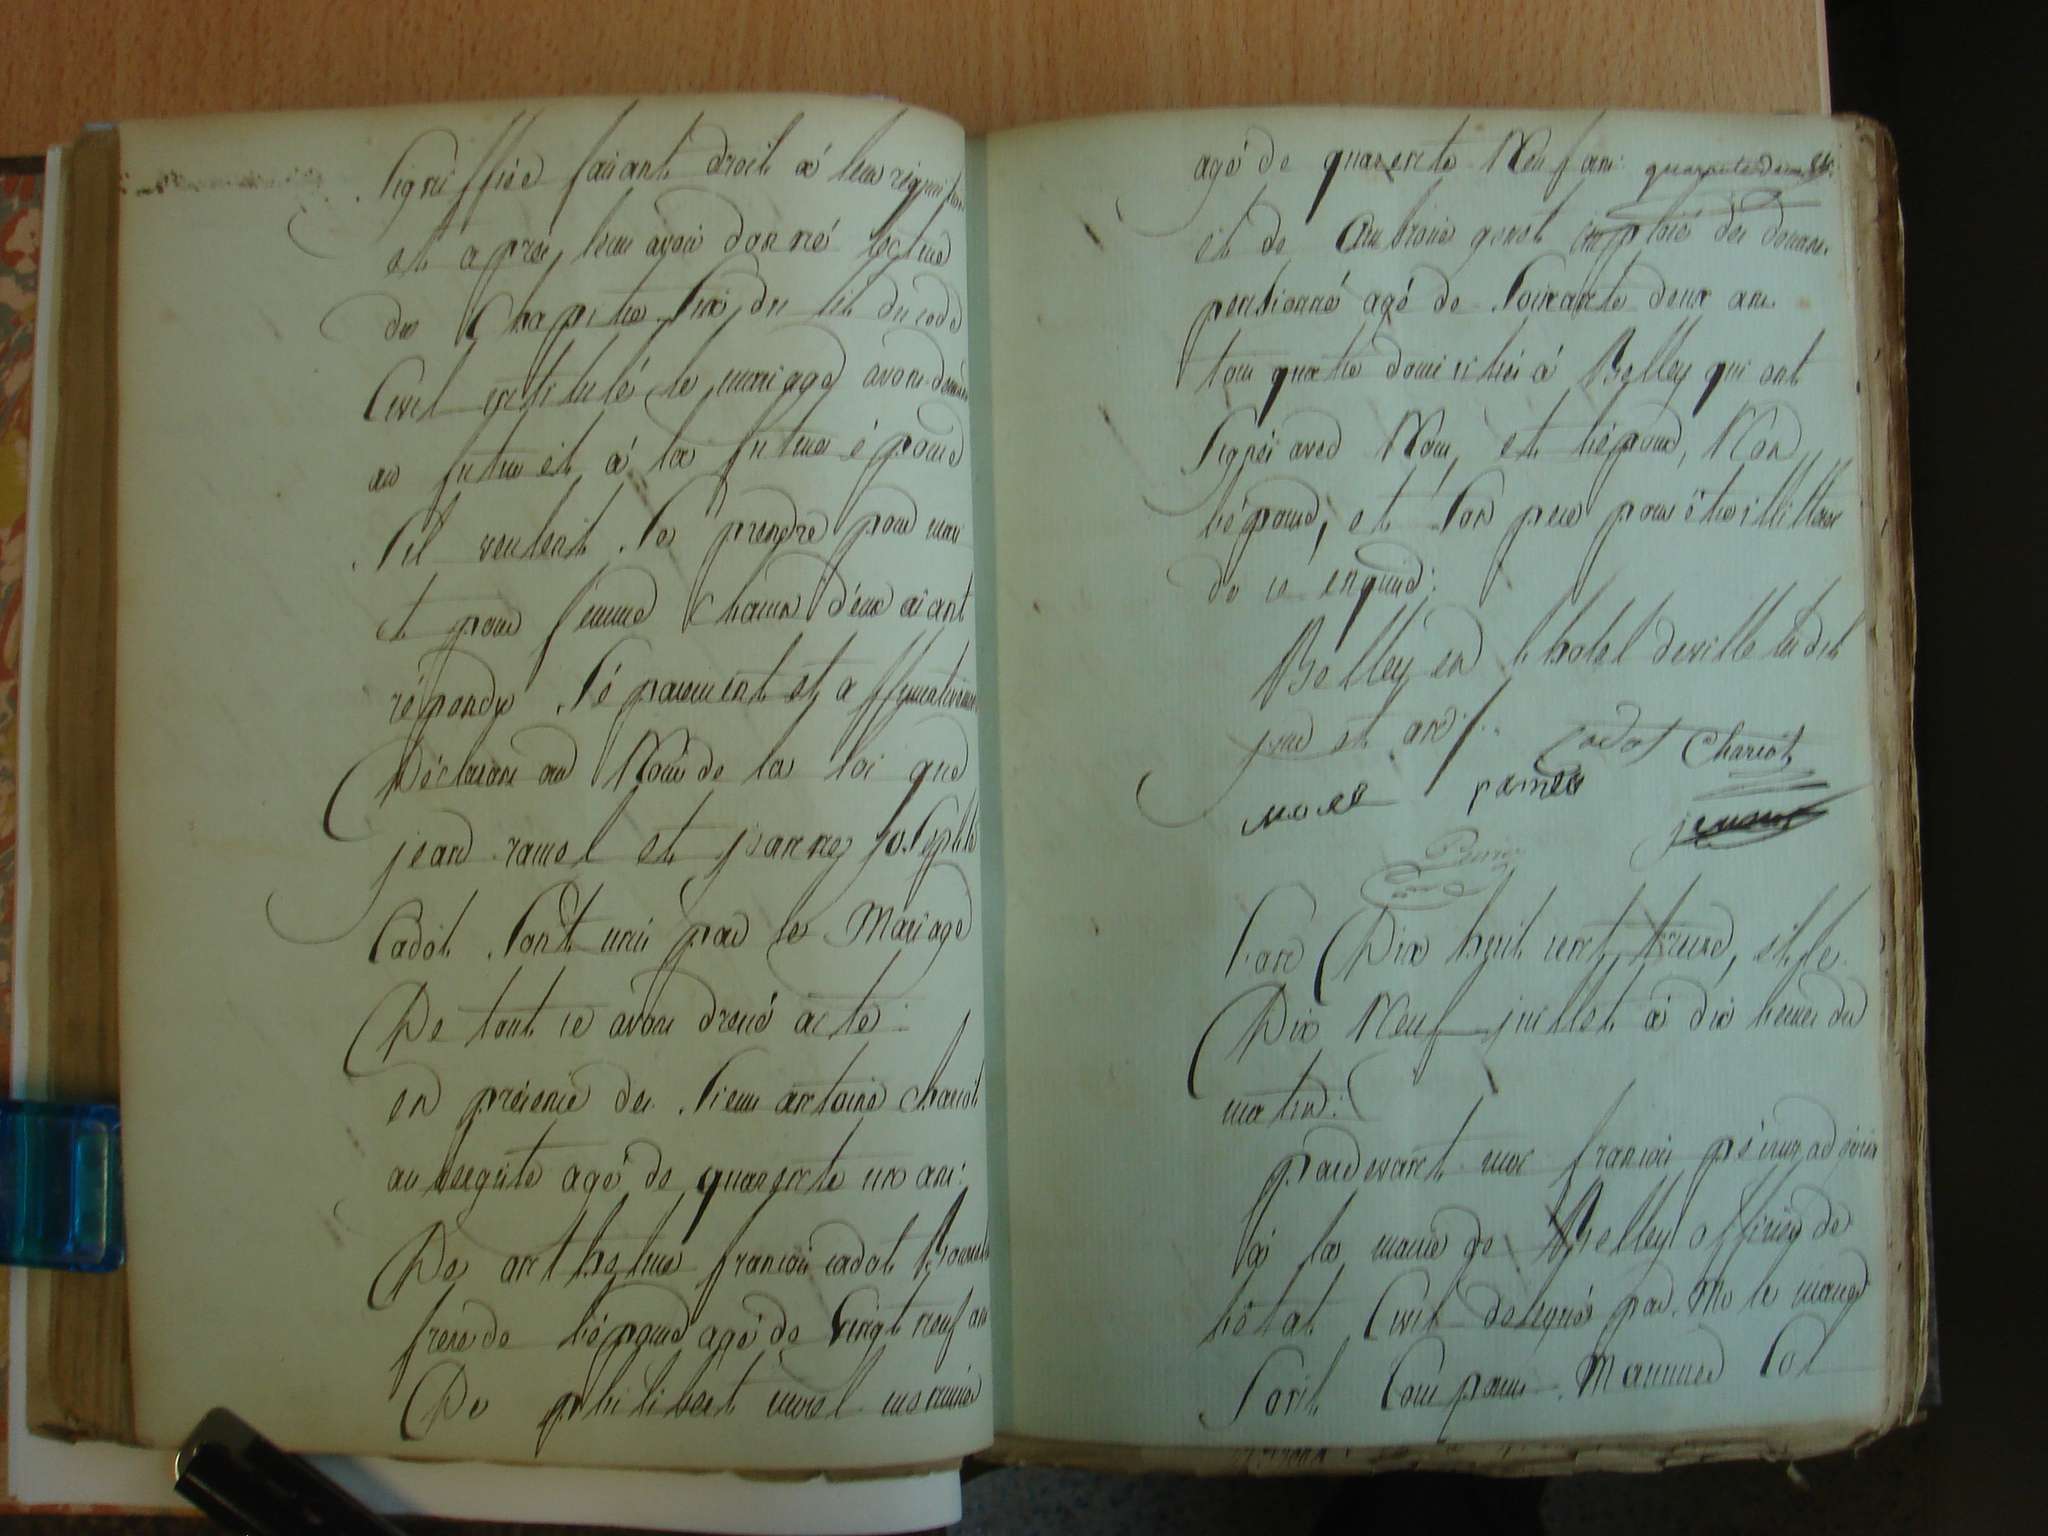 Signiffiée faisant droit à leur réquisition
et après leur avoir donné lecture
du Chapitre Six du tit. du code
Civil intitulé le mariage avons demandé
au futur et à la future épouse
S'il veulent Se prendre pour mari
et pour femme Chacun d'eux aiant
répondu Séparément et affirmativement
Déclarons au Nom de la loi que
jean ramel et jeanne josephte
Cadot Sont unis par le Mariage
De tout ce avons dressé acte
en présence des Sieurs antoine Chariot
aubergiste agé de quarente un ans:
De anthelme françois cadot
frere de l'épouse agé de vingt neuf ans
De philibert morel menuisier
agé de quarente Neuf ans quarante deux
et de Ambroise genot emploié des douanes
pensionné agé de Soixante deux ans
tous quatre domiciliés à Belley qui ont
Signés avec Nous, et l'époux, Non
l'épouse, et Son pere pour être illitteré
de ce enquis:
Belley en l'hotel de ville les dits
jour et an
cadot Chariot
morel ramel
genot
Peme
L'an Dix huit cent treize, et le
Dix Neuf juillet à dix heures du
matin:
Pardevant moi françois adjoint
à la mairie de Belley officier de
l'état Civil délégué par Mr le maire
Sont Comparus